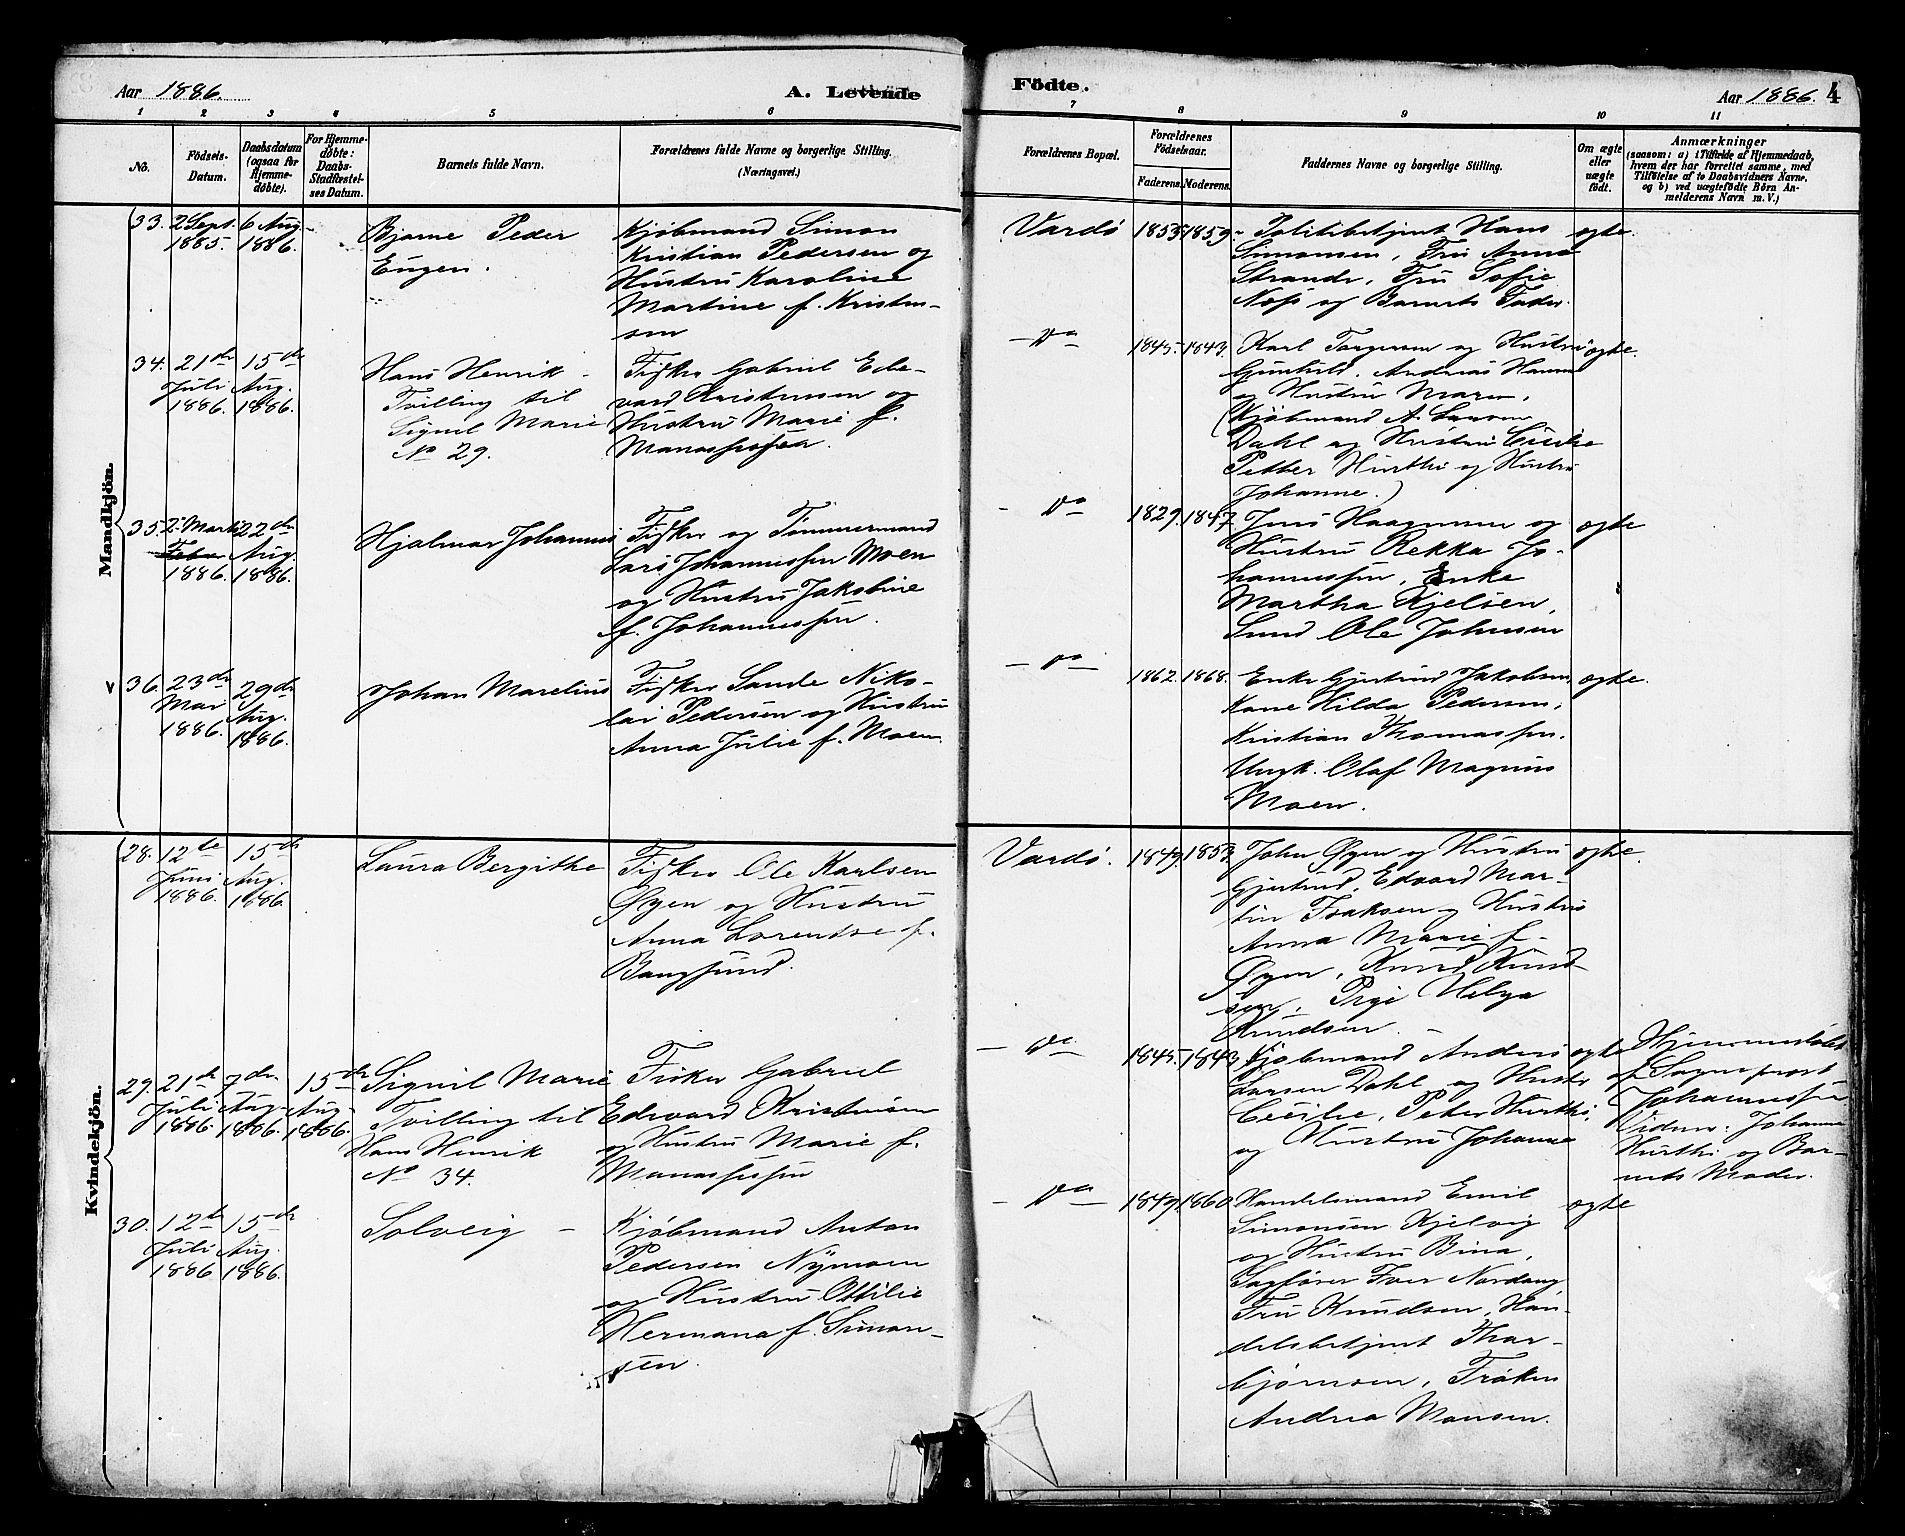 Aar 1886.
A. Levende
Födte.
Aar 1886. 4
1 2 3 4 5 6 7 8 9 10 11
No.
Födsels-
Datum.
Daabsdatum
(ogsaa for
Hjemme-
døbte).
For Hjemme-
døbte:
Daabs-
Stadfæstel-
ses Datum.
Barnets fulde Navn.
Forældrenes fulde Navne og borgerlige Stilling.
(Næringsvei.)
Forældrenes Bopæl.
Forældrenes
Fødselsaar.
Faderens. Moderens.
Faddernes Navne og borgerlige Stilling.
Om ægte
eller
uægte
født.
Anmærkninger
(saasom: a) i Tilfælde af Hjemmedaab,
hvem der har forrettet samme, med
Tilføielse af to Daabsvidners Navne,
og b) ved uægtefødte Börn An-
melderens Navn m. V.)
Mandkjön.
33.
2 Sept.
1885.
6 Aug.
1886.
Bjarne Peder
Eugen.
Kjøbmand Simon
Kristian Pedersen og
Hustru Karoline
Martine f. Kristen-
sen
Vardø
1853
1859
Politibetjent Hans
Simonsen, Fru Anna
Strande, Fru Sofie
og Barnets Fader.
ægte.
34.
21de
Juli
1886.
15de
Aug.
1886.
Hans Henrik -
Tvilling til
Signil Marie
No 29.
Fisker Gabriel Ed-
vard Kristensen og
Hustru Marie f.
Manassesen.
- Do -
1845.
1843.
Karl Torgersen og Hustru
Andreas
og Hustru Maren,
(Kjøbmand A. Larsen
Dahl og Hustru Cecilie
Petter Hurthi og Hustru
Johanne.)
ægte.
35.
2. Marts
1886.
22de
Aug.
1886.
Hjalmar Johannes
Fisker og Tømmermand
Lars Johannessen Moen
og Hustru Jakobine
f. Johannessen.
- Do
1829.
1847.
Jens Haagensen og
Hustru Rekka Jo-
hannessen, Enke
Martha Kjelsen,
Ole Johnsen
ægte
36.
23de
Mar
1886.
29de
Aug.
1886.
Johan Marelius
Fisker Sande Niko-
lai Pedersen og Hustru
Anna Julie f. Moen.
- Do -
1862.
1868.
Enke Gjertrud Jakobsen,
Kone Hilda Pedersen,
Kristian Thomassen.
Ungk. Olaf Magnus
Moen.
ægte.
Kvindekjön.
28.
12te
Juni
1886.
15de
Aug.
1886.
Laura Bergithe
Fisker Ole Karlsen
Øyen og Hustru
Anna Lorentse f.
Bangsund.
Vardø.
1849.
1853.
John Øyen og Hustru
Gjertrud, Edvard Mar-
tin Isaksen og Hustru
Anna Marie f.
Øyen, Knud Knud-
sen, Pige Helga
Knudsen.
ægte.
29.
21de
Juli
1886.
7de
Aug.
1886.
15de
Aug.
1886.
Signil Marie
Tvilling til
Hans Henrik
No 34.
Fisker Gabriel
Edvard Kristensen
og Hustru Marie f.
Manassesen
- Do -
1845.
1843
Kjøbmand Anders
Larsen Dahl og Hustru
Cecilie, Peter Hurthi,
og Hustru Johanne
ægte
Hjemmedøbt
af Sogneprest
Johannessen
Vidner: Johanne
Hurthi og Bar-
nets Moder.
30.
12te
Juli
1886
15de
Aug.
1886.
Solveig -
Kjøbmand Anton
Pedersen Nymoen
og Hustru Ottilie
Hermana f. Simon-
sen.
- Do -
1849.
1860
Handelsmand Emil
Simonsen Kjelvig
og Hustru Bina,
Sagfører Iver Nordang
Fru Knudsen, Han-
delsbetjent Thor-
bjørnsen, Frøken
Andrea Monsen.
ægte